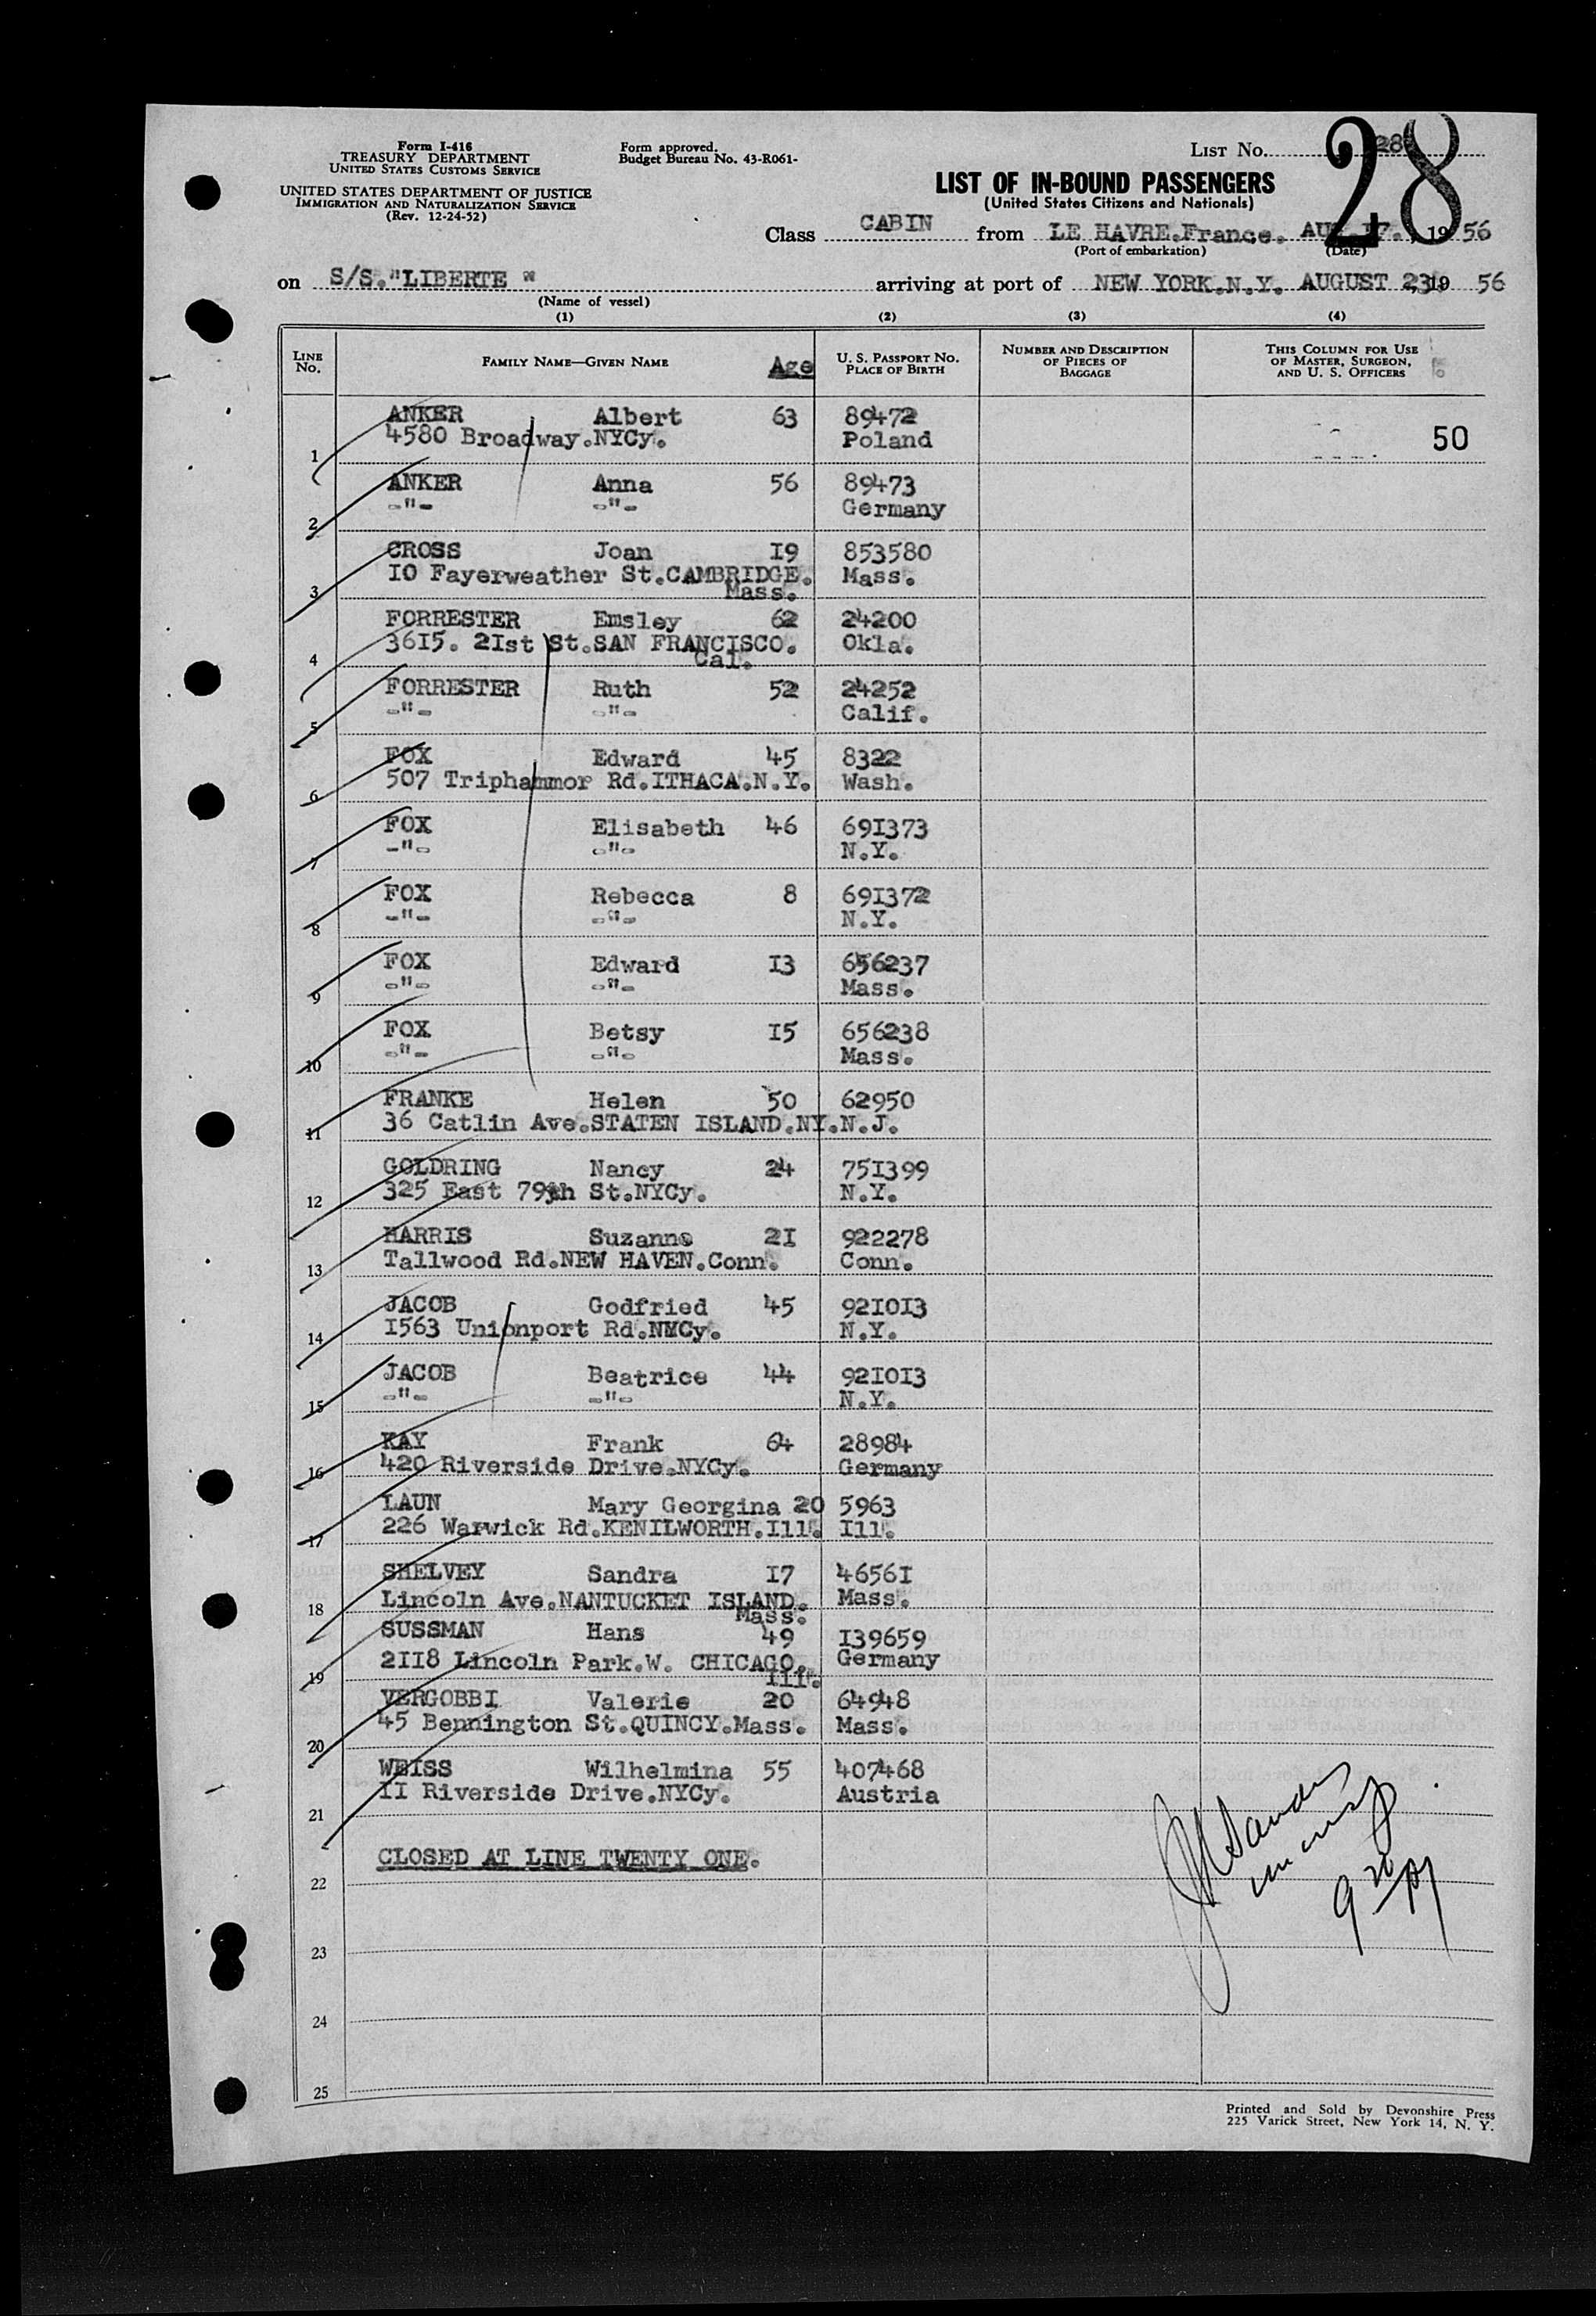 Form I-416
TREASURY DEPARTMENT
UNITED STATES CUSTOMS SERVICE
UNITED STATES DEPARTMENT OF JUSTICE
IMMIGRATION AND NATURALIZATION SERVICE
(Rev. 12-24-52)
Form approved.
Budget Bureau No. 43-R061-
LIST No. 28
28
LIST OF IN-BOUND PASSENGERS
(United States Citizens and Nationals)
Class CABIN from LE HAVRE.France. AUG.17., 1956
(Port of embarkation) (Date)
on S/S."LIBERTE " arriving at port of NEW YORK.N.Y. AUGUST 23, 19 56
(Name of vessel)
(1) (2) (3) (4)
LINE No. FAMILY NAME—GIVEN NAME Age U. S. PASSPORT NO. PLACE OF BIRTH NUMBER AND DESCRIPTION OF PIECES OF BAGGAGE THIS COLUMN FOR USE OF MASTER, SURGEON, AND U. S. OFFICERS
ANKER Albert 63 89472
1 4580 Broadway.NYCy. Poland 50
ANKER Anna 56 89473
2 -"- -"- Germany
CROSS Joan I9 853580
3 IO Fayerweather St.CAMBRIDGE. Mass.
Mass.
FORRESTER Emsley 62 24200
4 36I5. 2Ist St.SAN FRANCISCO. Okla.
Cal.
FORRESTER Ruth 52 24252
5 -"- -"- Calif.
FOX Edward 45 8322
6 507 Triphammor Rd.ITHACA.N.Y. Wash.
FOX Elisabeth 46 69I373
7 -"- -"- N.Y.
FOX Rebecca 8 69I372
8 -"- -"- N.Y.
FOX Edward I3 656237
9 -"- -"- Mass.
FOX Betsy I5 656238
10 -"- -"- Mass.
FRANKE Helen 50 62950
11 36 Catlin Ave.STATEN ISLAND.NY. N.J.
GOLDRING Nancy 24 75I399
12 325 East 79th St.NYCy. N.Y.
HARRIS Suzanne 2I 922278
13 Tallwood Rd.NEW HAVEN.Conn. Conn.
JACOB Godfried 45 92I0I3
14 I563 Unionport Rd.NYCy. N.Y.
JACOB Beatrice 44 92I0I3
15 -"- -"- N.Y.
KAY Frank 64 28984
16 420 Riverside Drive.NYCy. Germany
LAUN Mary Georgina 20 5963
17 226 Warwick Rd.KENILWORTH.Ill. Ill.
SHELVEY Sandra I7 4656I
18 Lincoln Ave.NANTUCKET ISLAND. Mass.
Mass.
SUSSMAN Hans 49 I39659
19 2II8 Lincoln Park.W. CHICAGO. Germany
Ill.
VERGOBBI Valerie 20 64948
20 45 Bennington St.QUINCY.Mass. Mass.
WEISS Wilhelmina 55 407468
21 II Riverside Drive.NYCy. Austria
CLOSED AT LINE TWENTY ONE.
22
23
24
25
Printed and Sold by Devonshire Press
225 Varick Street, New York 14, N. Y.